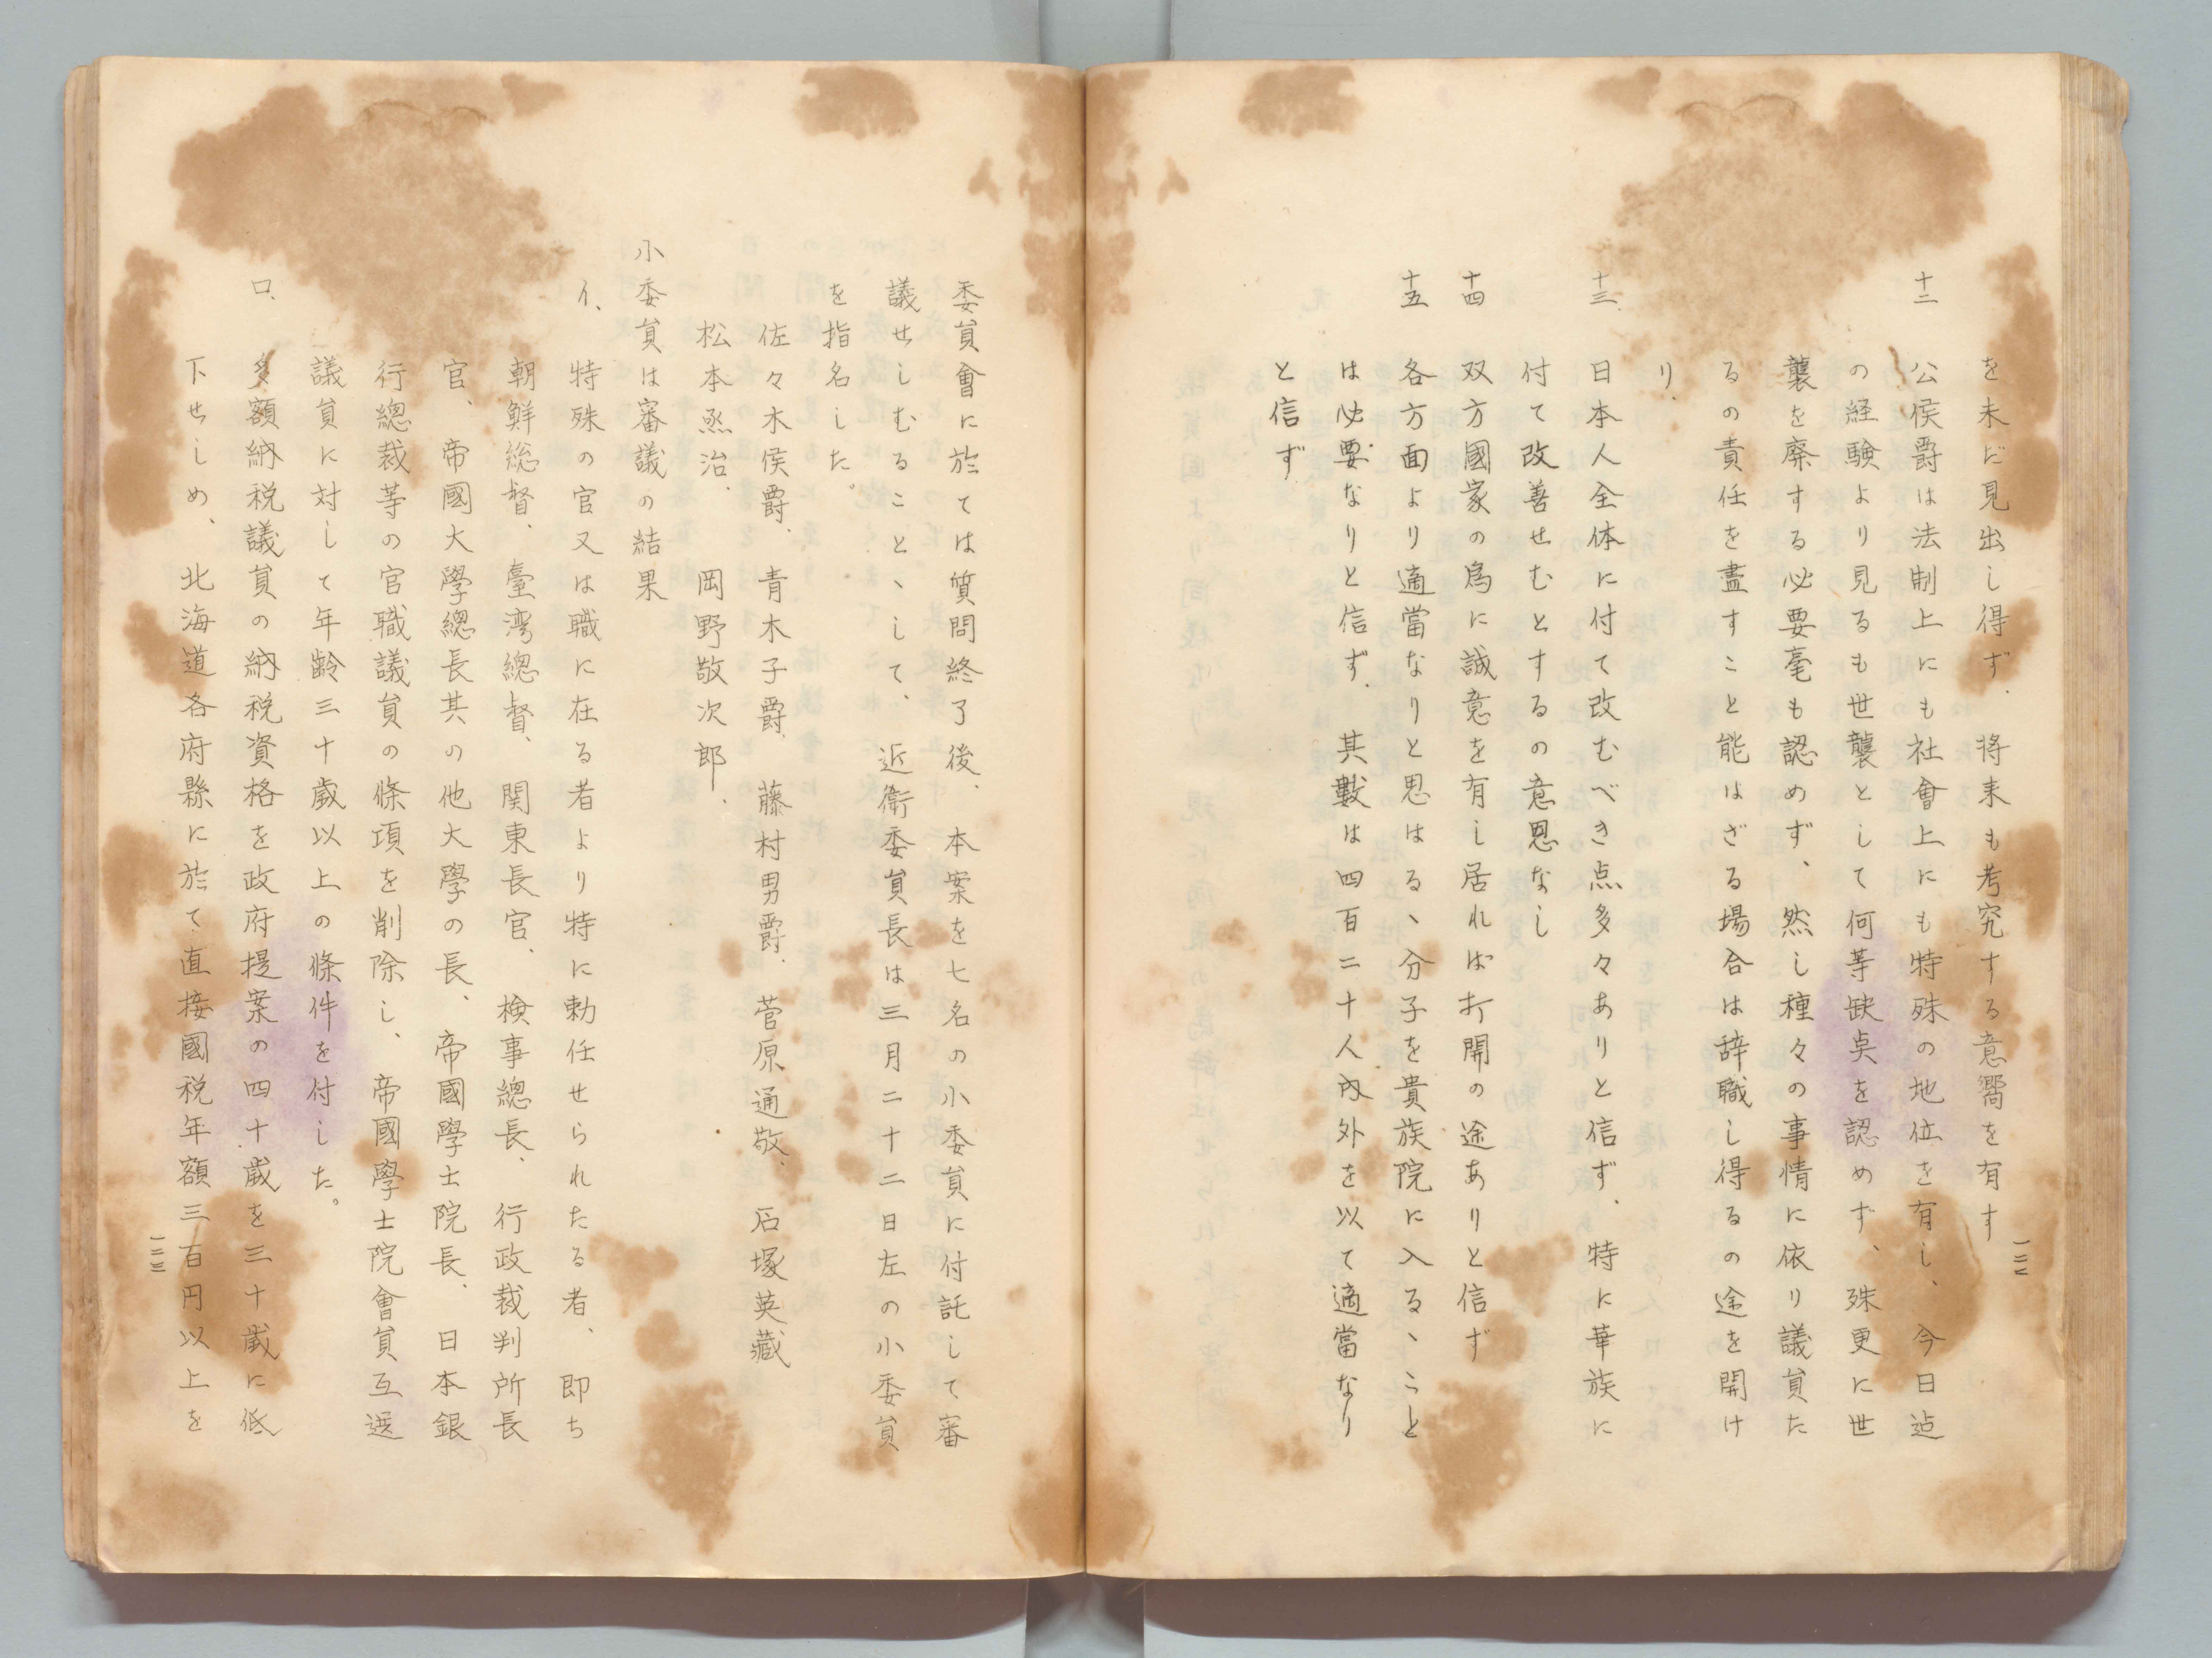 を未だ見出し得ず、将来も考究する意嚮を有す
十二 公侯爵は法制上にも社會上にも特殊の地位を有し、今日迠
の経験より見るも世襲として何等缺奌を認めず、殊更に世
襲を廃する必要毫も認めず、然し種々の事情に依り議員た
るの責任を盡すこと能はざる場合は辞職し得るの途を開け
り、
十三 日本人全体に付て改むべき点多々ありと信ず、特に華族に
付て改善せむとするの意思なし
十四 双方國家の爲に誠意を有し居れば打開の途ありと信ず
十五 各方面より適當なりと思はる、分子を貴族院に入る、こと
は必要なりと信ず、其數は四百二十人內外を以て適當なり
と信ず
一三二
委員會に於ては質問終了後、本案を七名の小委員に付託して審
議せしむること、して、近衛委員長は三月二十二日左の小委員
を指名した。
佐々木侯爵、青木子爵、藤村男爵、菅原通敬、石塚英藏
松本烝治、岡野敬次郎、
小委員は審議の結果
イ、特殊の官又は職に在る者より特に勅任せられたる者、即ち
朝鮮総督、臺湾總督、関東長官、検事總長、行政裁判所長
官、帝國大學總長其の他大學の長、帝國學士院長、日本銀
行總裁等の官職議員の條項を削除し、帝國學士院會員互選
議員に対して年齢三十歳以上の條件を付した。
ロ、多額納税議員の納税資格を政府提案の四十歳を三十歳に低
下せしめ、北海道各府縣に於て直接國税年額三百円以上を
一三三